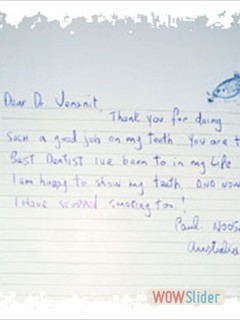 Dear Dr Venanit,
Thank you for doing
such a good job on my teeth. You are t
Best Dentist I've been to in my life
I am happy to show my teeth, AND NOW
I Have stopped smoking too!
Paul. NOOS
Australia
WOWSlider